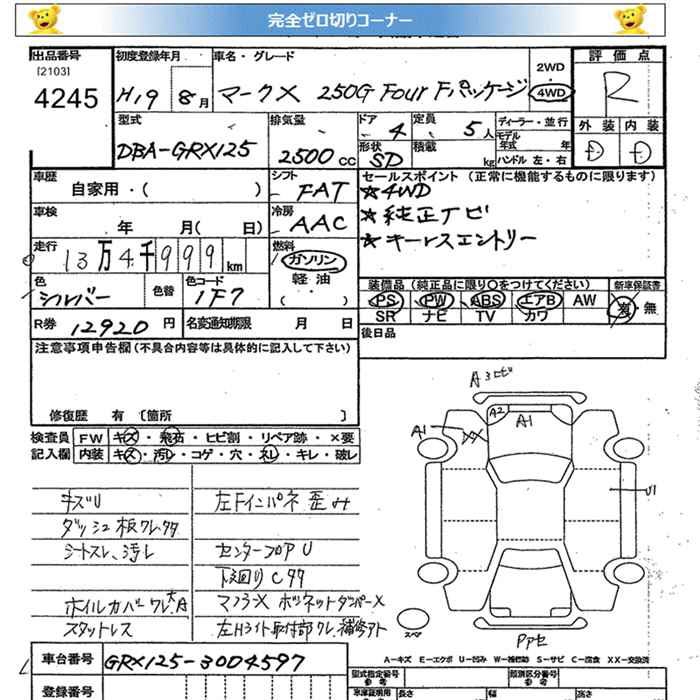 完全ゼロ切りコーナー
出品番号 初度登録年月 車名・グレード 2WD 評価点
[2103]
4245 H19 8月 マークX 250G Four Fパッケージ 4WD R
型式 排気量 ドア 4 定員 5人 ディーラー・並行 外装 内装
DBA-GRX125 2500cc 形状 SD 積載 kg モデル年式 年 ハンドル 左・右 D D
車歴 自家用・( ) シフト FAT セールスポイント (正常に機能するものに限ります)
車検 年 月( 日) 冷房 AAC ★4WD
★純正ナビ
★キーレスエントリー
走行 13万4千999km 燃料 ガソリン 軽油 ( )
色 シルバー 色替 色コード 1F7 装備品 (純正品に限り○をつけてください) 新車保証書
PS PW ABS エアB AW 有・無
SR ナビ TV カワ
R券 12920円 名変通知期限 月 日 後日品
注意事項申告欄(不具合内容等は具体的に記入して下さい)
修復歴 有 [箇所 ]
検査員 FW キズ・飛石・ヒビ割・リペア跡・×要
記入欄 内装 キズ・汚レ・コゲ・穴・スレ・キレ・破レ
キズU 左Fインパネ歪み
ダッシュ板ワレ
シートスレ、汚レ センターフロアU
下廻りC
ホイルカバーワレ 大A マフラーX ボンネットダンパーX
スタットレス 左Hライト取付部ワレ、補修アト
A3
A2 A1
A1
U1
スペア
A-キズ E-エクボ U-凹み W-補修跡 S-サビ C-腐食 XX-交換済
車台番号 GRX125-3004597 型式指定番号 参考 類別区分番号 参考
登録番号 車庫証明用 長さ 幅 高さ